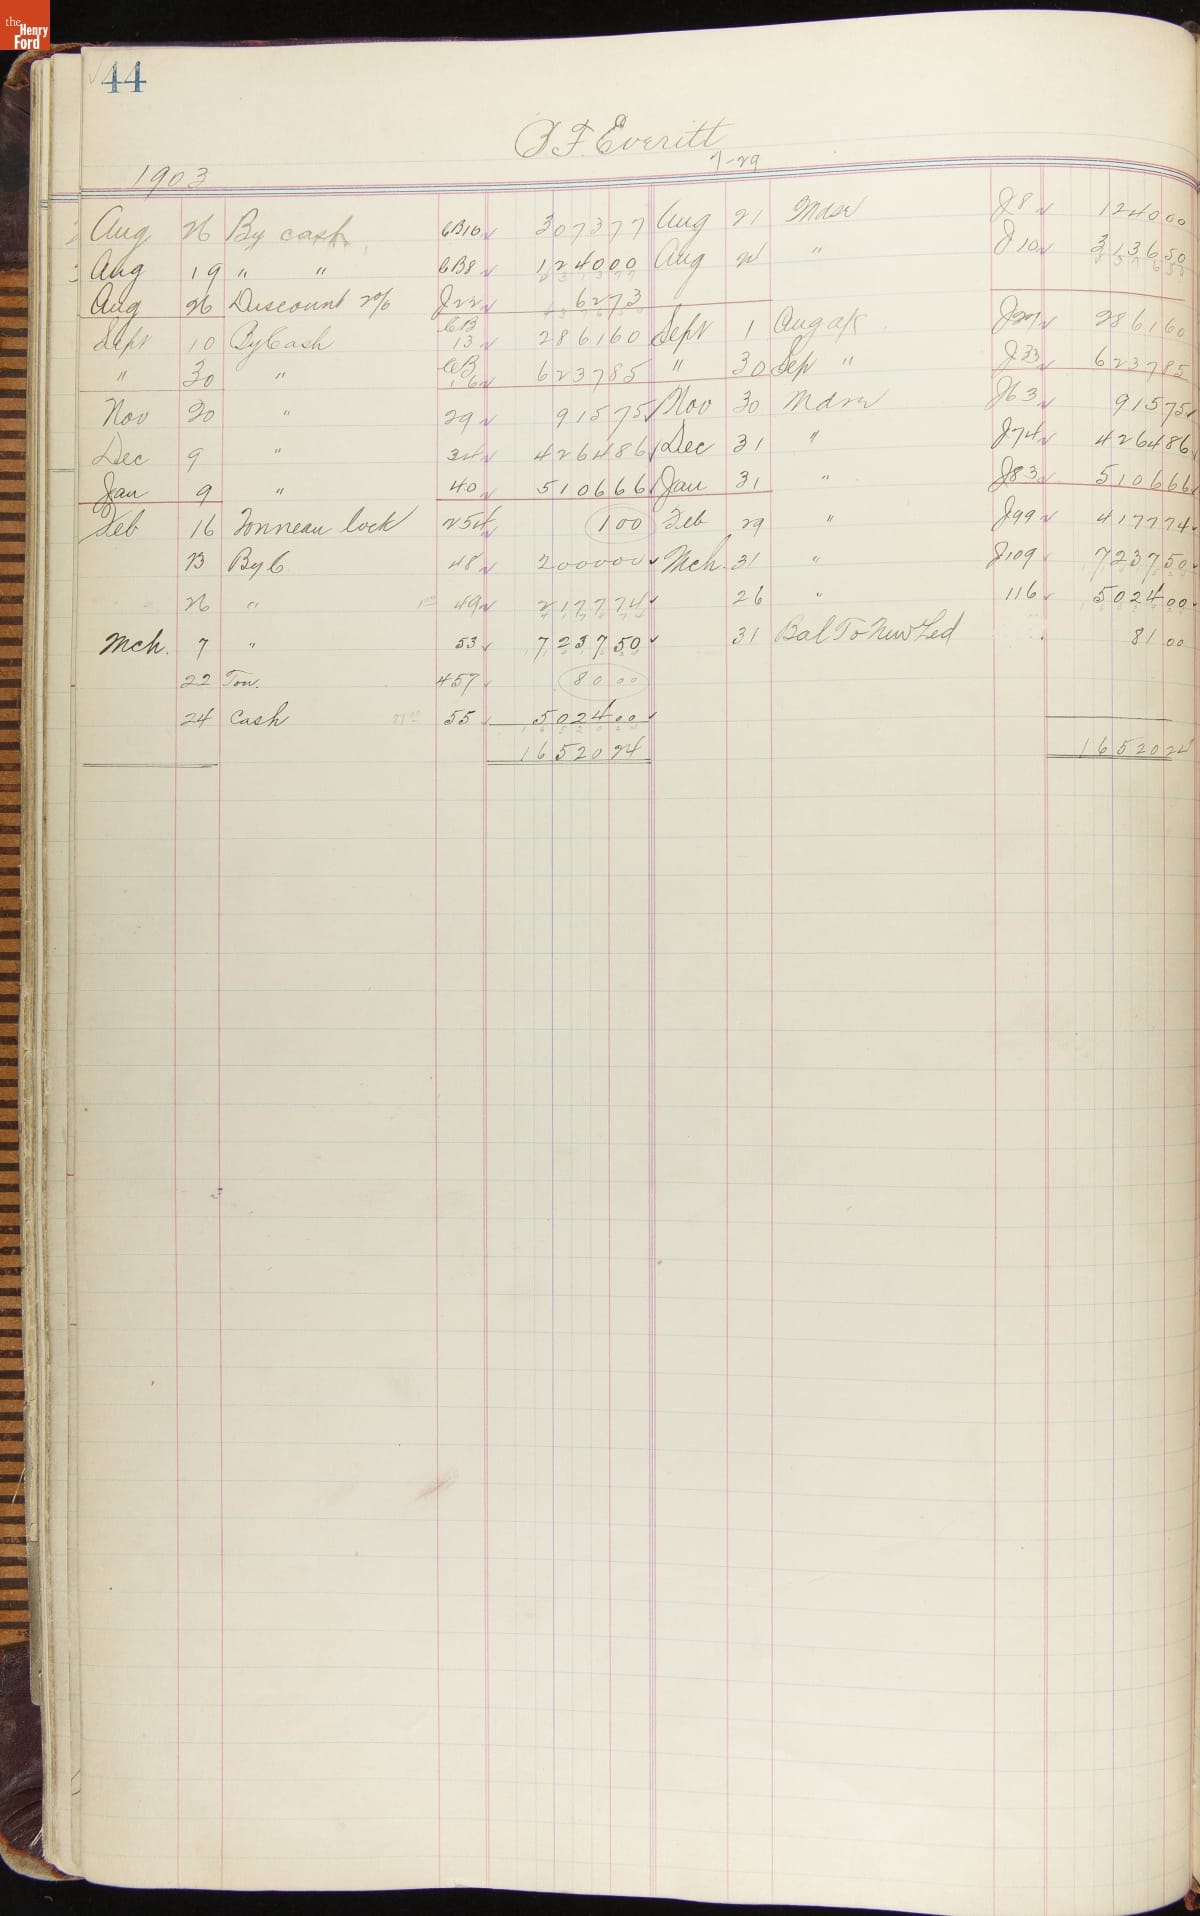 the Henry Ford
44
B F Everitt
7-29
1903
Aug 26 By cash CB10 3073 77 Aug 21 Mdse J8 1240 00
Aug 19 " " CB8 1240 00 Aug 21 " J10 3136 50
Aug 26 Discount 2% J22 62 73
Sept 10 By Cash CB 13 2861 60 Sept 1 Aug a/c J27 2861 60
" 30 " CB 16 6237 85 " 30 Sep " J33 6237 85
Nov 20 " 29 915 75 Nov 30 Mdse J63 915 75
Dec 9 " 34 4264 86 Dec 31 " J74 4264 86
Jan 9 " 40 5106 66 Jan 31 " J83 5106 66
Feb 16 Tonneau lock 254 1 00 Feb 29 " J99 4177 74
13 By C 48 2000 00 Mch. 31 " J109 7237 50
26 " 49 2177 74 26 " 116 5024 00
Mch. 7 " 53 7237 50 31 Bal To New Led 81 00
22 Ton. 457 80 00
24 Cash 55 5024 00
16520 24 16520 24